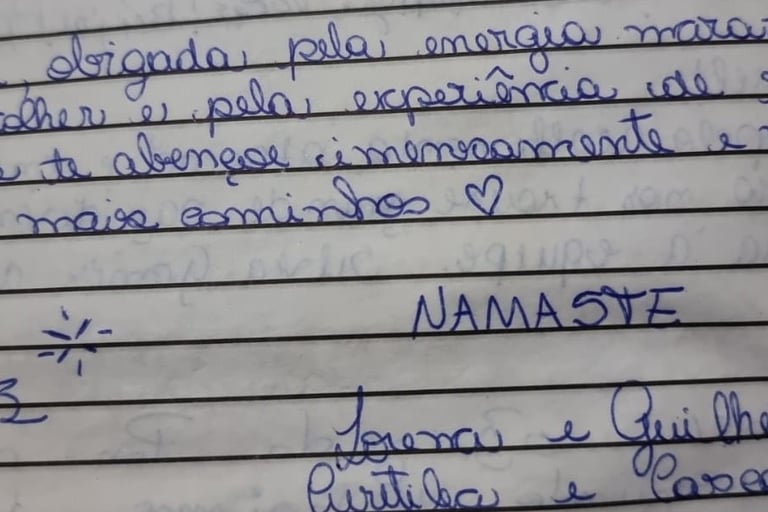 obrigada pela energia mara
olher e pela experiência de
e te abençoe imensamente e
mais caminhos ♡
NAMASTE
Lorena e Guilhe
Curitiba e